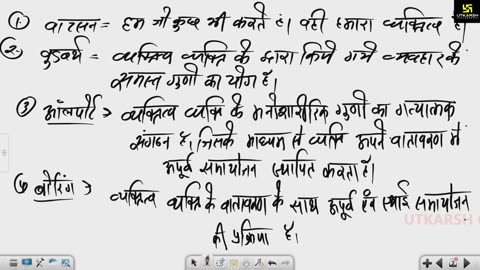 ① वाटसन = हम जो कुछ भी करते है। वही हमारा व्यक्तित्व है।
②. वुडवर्थ = व्यक्तित्व व्यक्ति के द्वारा किये गये व्यवहार के
समस्त गुणों का योग है।
③ ऑलपोर्ट > व्यक्तित्व व्यक्ति के मनोशारीरिक गुणों का गत्यात्मक
संगठन है, जिसके माध्यम से व्यक्ति अपने वातावरण में
अपूर्व समायोजन स्थापित करता है।
बोरिंग > व्यक्तित्व व्यक्ति के वातावरण के साथ अपूर्व एवं स्थाई समायोजन
की प्रक्रिया है।
UTKARSH
UTKARSH